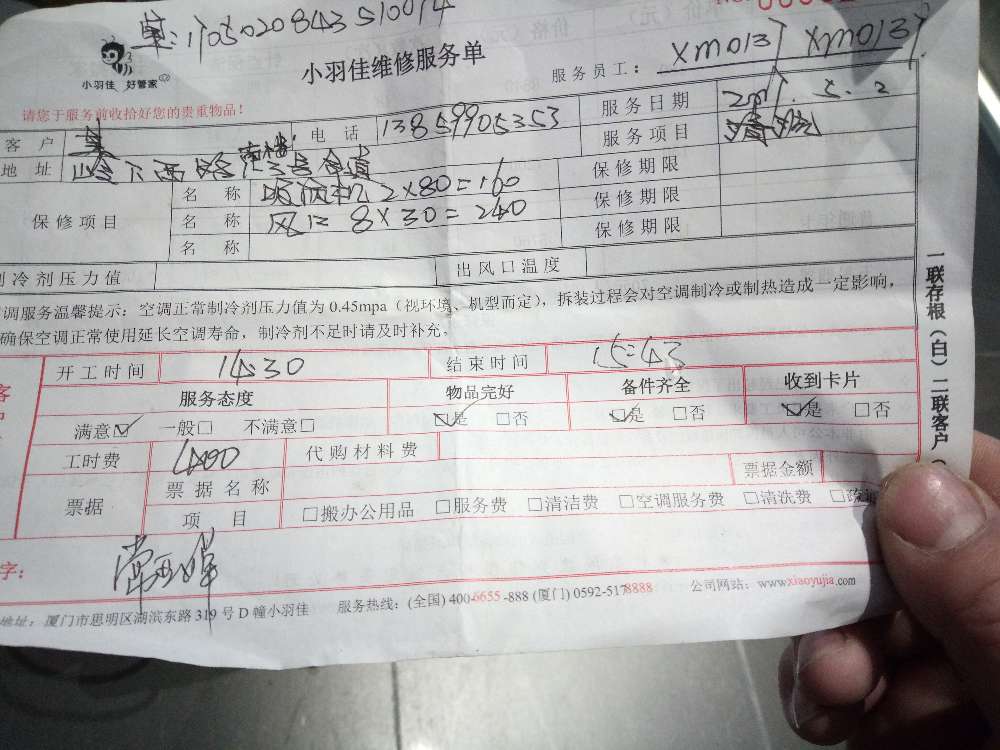 单:1105020843510014
小羽佳 好管家
小羽佳维修服务单
服务员工: XM0137 XM0137
请您于服务前收拾好您的贵重物品!
客户 电话 13859905353 服务日期 5.2
地址 服务项目 清洗
保修项目 名称 吸顶机 2×80=160 保修期限
名称 风口 8×30=240 保修期限
名称 保修期限
制冷剂压力值 出风口温度
调服务温馨提示:空调正常制冷剂压力值为 0.45mpa(视环境、机型而定),拆装过程会对空调制冷或制热造成一定影响,
确保空调正常使用延长空调寿命,制冷剂不足时请及时补充。
开工时间 14:30 结束时间 15:43
服务态度 物品完好 备件齐全 收到卡片
满意☑ 一般□ 不满意□ ☑是 □否 ☑是 □否 ☑是 □否
工时费 400 代购材料费
票据 票据名称 票据金额
项目 □搬办公用品 □服务费 □清洁费 □空调服务费 □清洗费
字:
地址:厦门市思明区湖滨东路 319 号 D 幢小羽佳 服务热线:(全国) 400-6655-888 (厦门) 0592-5178888 公司网站:www.xiaoyujia.com
一联存根(白)二联客户(